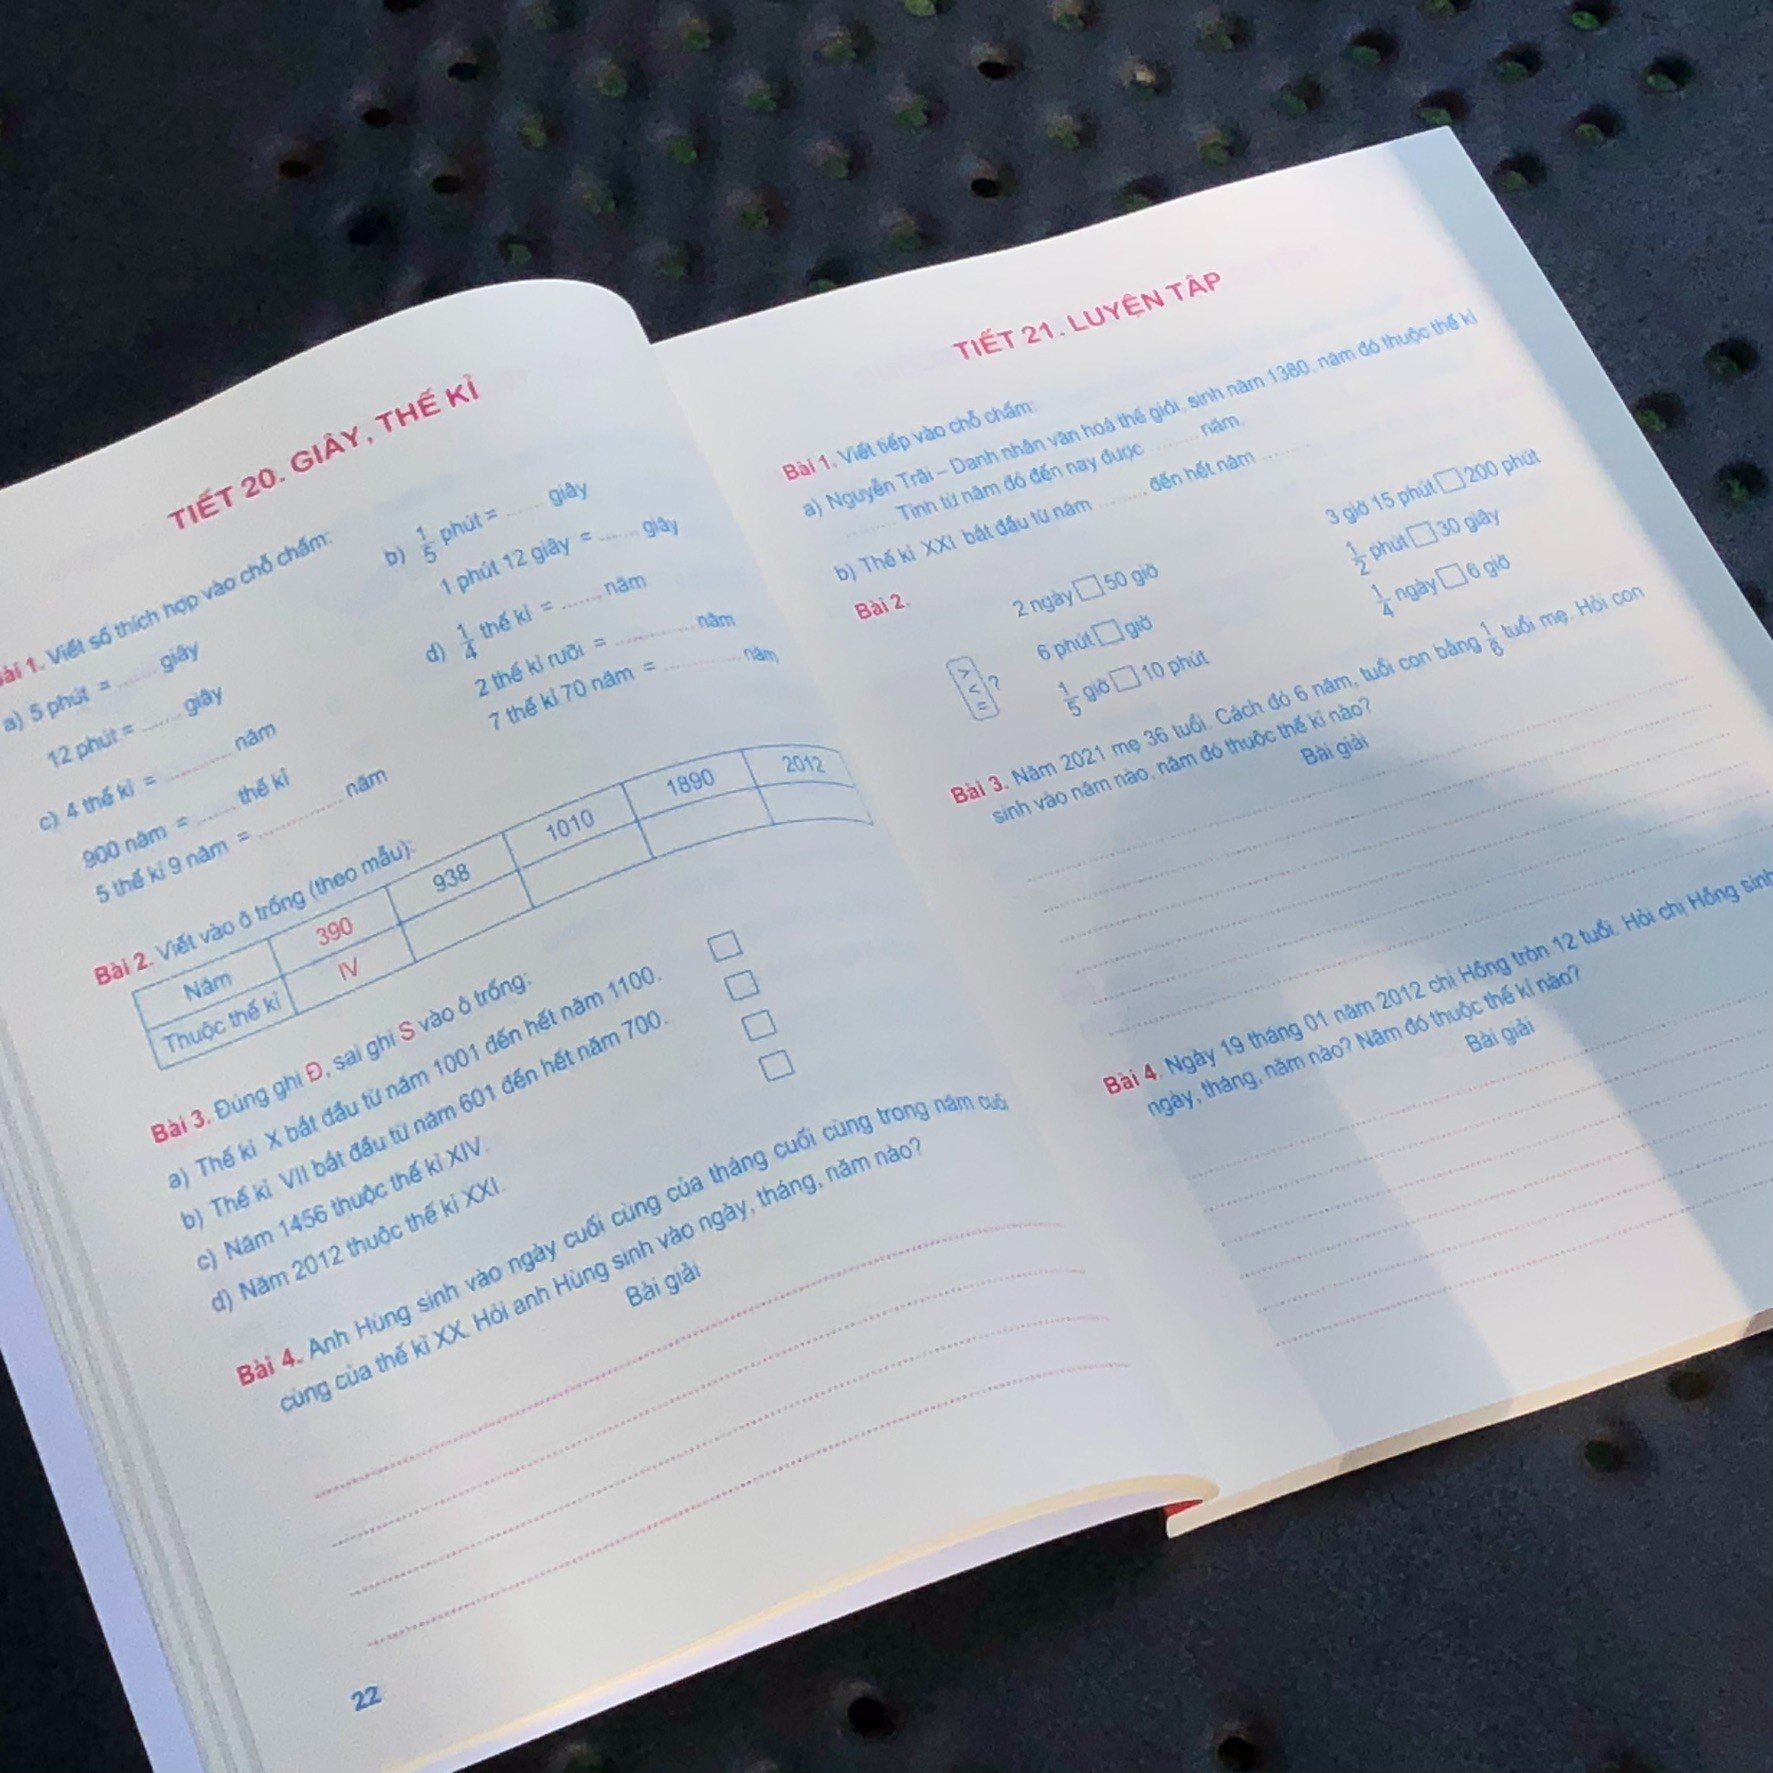 TIẾT 20. GIÂY, THẾ KỈ
Bài 1. Viết số thích hợp vào chỗ chấm:
a) 5 phút = ........ giây
12 phút = ........ giây
b) 1/5 phút = ........ giây
1 phút 12 giây = ........ giây
c) 4 thế kỉ = .............. năm
900 năm = ........ thế kỉ
5 thế kỉ 9 năm = .................. năm
d) 1/4 thế kỉ = ........ năm
2 thế kỉ rưỡi = ................ năm
7 thế kỉ 70 năm = ................ năm
Bài 2. Viết vào ô trống (theo mẫu):
Năm 390 938 1010 1890 2012
Thuộc thế kỉ IV
Bài 3. Đúng ghi Đ, sai ghi S vào ô trống:
a) Thế kỉ X bắt đầu từ năm 1001 đến hết năm 1100.
b) Thế kỉ VII bắt đầu từ năm 601 đến hết năm 700.
c) Năm 1456 thuộc thế kỉ XIV.
d) Năm 2012 thuộc thế kỉ XXI.
Bài 4. Anh Hùng sinh vào ngày cuối cùng của tháng cuối cùng trong năm cuối
cùng của thế kỉ XX. Hỏi anh Hùng sinh vào ngày, tháng, năm nào?
Bài giải
22
TIẾT 21. LUYỆN TẬP
Bài 1. Viết tiếp vào chỗ chấm:
a) Nguyễn Trãi – Danh nhân văn hoá thế giới, sinh năm 1380, năm đó thuộc thế kỉ
.......... Tính từ năm đó đến nay được .......... năm.
b) Thế kỉ XXI bắt đầu từ năm .......... đến hết năm ..........
Bài 2.
> < = ?
2 ngày □ 50 giờ
3 giờ 15 phút □ 200 phút
6 phút □ giờ
1/2 phút □ 30 giây
1/5 giờ □ 10 phút
1/4 ngày □ 6 giờ
Bài 3. Năm 2021 mẹ 36 tuổi. Cách đó 6 năm, tuổi con bằng 1/6 tuổi mẹ. Hỏi con
sinh vào năm nào, năm đó thuộc thế kỉ nào?
Bài giải
Bài 4. Ngày 19 tháng 01 năm 2012 chị Hồng tròn 12 tuổi. Hỏi chị Hồng sinh
ngày, tháng, năm nào? Năm đó thuộc thế kỉ nào?
Bài giải